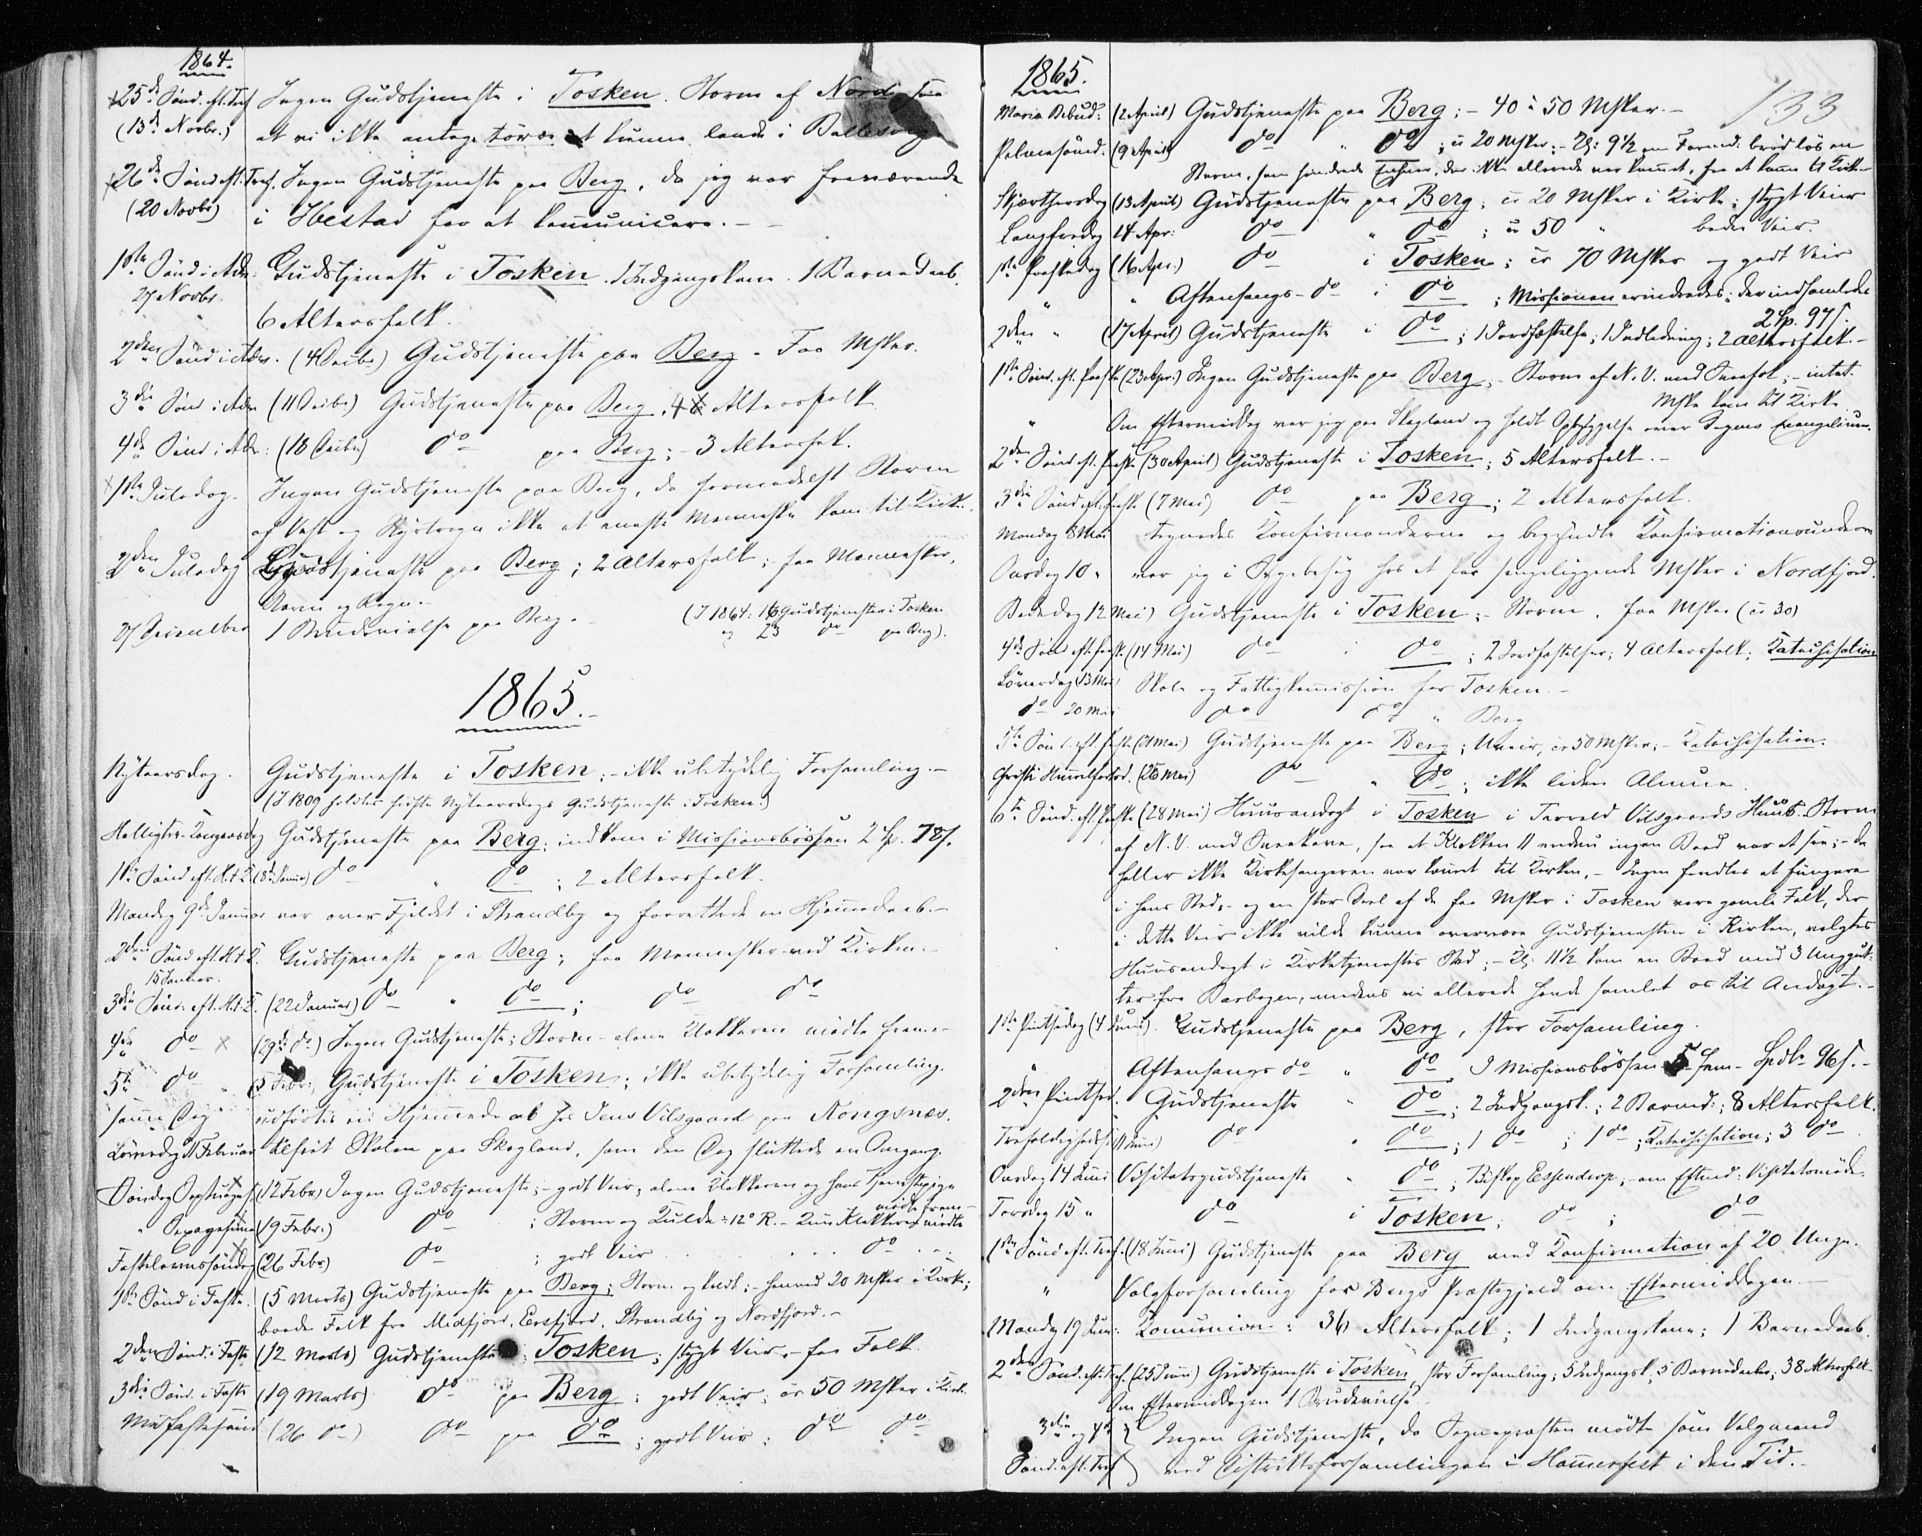 1864.
25de Sønd. eft. Tref. Ingen Gudstjeneste i Tosken. Storm af Nord
(13de Novbr.) at vi ikke turde kunne lande i
26de Sønd. eft. Tref. Ingen Gudstjeneste paa Berg, da jeg var fraværende
(20 Novbr) i Ibestad for at kommunicere. -
1ste Sønd. i Adv. Gudstjeneste i Tosken. 1 Indgangskone. 1 Barnedaab.
27 Novbr. 6 Altersfolk.
2den Sønd. i Adv. (4 Decbr.) Gudstjeneste paa Berg. Faa Msker.
3die Sønd. i Adv. (11 Decbr) Gudstjeneste paa Berg. 4 Altersfolk
4de Sønd. i Adv: (18 Decbr) do paa Berg; - 3 Altersfolk.
1ste Juledag. Ingen Gudstjeneste paa Berg, da formedelst Storm
af Vest og ikke et eneste Menneske kom til Kirke.
2den Juledag Gudstjeneste paa Berg; 2 Altersfolk; faa Mennesker,
Storm og Regn. -
27 December 1 Brudevielse paa Berg. (I 1864: 16 Gudstjenester i Tosken
og 23 do paa Berg).
1865.
Nytaarsdag. Gudstjeneste i Tosken; - ikke ubetydelig Forsamling. -
(I 1809 holdtes første Nytaarsdags Gudstjeneste i Tosken.)
Hellig tre Kongersdag Gudstjeneste paa Berg; indkom i Missionsbøssen 2 Sp. 78 s.
1ste Sønd. eft. H.t.K. (8de Januar) do " do; 2 Altersfolk.
Mandag 9de Januar var over Fjeldet i Strandby og forrettede en Hjemmedaab. -
2den Sønd. eft. H.t.K. Gudstjeneste paa Berg; faa Mennesker ved Kirken. -
15 Januar.
3die Sønd. eft. H.t.K. (22 Januar) do " do; do do
4de do (29de do) Ingen Gudstjeneste; Storm - alene Klokkeren mødte frem. -
5te do (5 Febr. Gudstjeneste i Tosken; ikke ubetydelig Forsamling.
samme Dag udførtes en Hjemmedaab hos Jens Vilsgaard paa Kongsnæs.
Løverdag 11 Februar tilseet Skolen paa Skogland, som den Dag sluttede en Omgang.
Søndag Septuages. (12 Febr) Ingen Gudstjeneste; - godt Veir; alene Klokkeren og hans Tjenestepige
mødte frem -
" Sexagesima (19 Febr.) do; Storm og Kulde ÷ 12° R. - Kun Klokkeren mødte
Fastelavnssøndag (26 Febr) do; godt Veir do
1ste Sønd. i Faste. (5 Marts) Gudstjeneste paa Berg; Storm og koldt; - henved 20 Msker i Kirke;
baade Folk fra Midfjord, Ersfjord, Strandby og Nordfjord. -
2den Sønd. i Faste (12 Marts) Gudstjeneste i Tosken; stygt Veir, - faa Folk.
3die Sønd. i Faste (19 Marts) do paa Berg; godt Veir; cr 50 Msker i Kirke.
Midfastesønd. (26 do) do paa do; godt Veir; do do
1865.
133
Maria Bebud: (2 April) Gudstjeneste paa Berg; - 40 à 50 Msker. -
Palmesønd. (9 April) do " do; cr 20 Msker. - Kl: 9½ om Formd. brød løs en
Storm, som hindrede Enhver, der ikke allerede var kommet, fra at komme til Kirke
Skjærthorsdag (13 April) Gudstjeneste paa Berg; cr 20 Msker i Kirke; stygt Veir
Langfredag 14 Apr: do " do; cr 50 " bedre Veir.
1ste Paaskedag (16 Apr.) do i Tosken; cr 70 Msker og godt Veir
" " Aftensangs-do i do; Missionen erindredes; der indsamledes
2 Sp. 97 s.
2den " (17 April) Gudstjeneste i do; 1 Jordfæstelse; 1 Indledning; 2 Altersfolk. -
1ste Sønd. eft. Paaske (23 Apr.) Ingen Gudstjeneste paa Berg; - Storm af N.V. med Snefok; - intet
Mske kom til Kirke
" Om Eftermiddag var jeg paa Skogland og holdt Opbyggelse over Dagens Evangelium.
2den Sønd. eft. Paaske (30 April) Gudstjeneste i Tosken; 5 Altersfolk. -
3die Sønd. eft. Paaske (7 Mai) do paa Berg; 2 Altersfolk.
Mandag 8 Mai tegnedes Konfirmanderne og begyndte Konfirmationsunderv.
Onsdag 10 " var jeg i Sygebesøg hos et Par sengeliggende Msker i Nordfjord.
Bededag 12 Mai) Gudstjeneste i Tosken; - Storm, faa Msker (cr 30)
4de Sønd. eft. Paaske (14 Mai) do i do; 2 Jordfæstelser; 4 Altersfolk; Katechisation
Løverdag 13 Mai Skole og Fattigkommission for Tosken. -
do 20 Mai do do " Berg
5te Sønd. eft. Paaske (21 Mai) Gudstjeneste paa Berg; Uveir, cr 50 Msker; - Katechisation.
Christi Himmelfartsd. (25 Mai) do " do; ikke liden Almue.
6te Sønd. eft. Paaske (28 Mai) Huusandagt i Tosken i Tarreld Vilsgaards Huus. Storm
af N.V. med Sneekave, saa at Klokken 11 endnu ingen Baad var at see; - da
heller ikke Kirkesangeren var kommet til Kirken, - Ingen fandtes at fungere
i hans Sted, - og en stor Deel af de faa Msker i Tosken vare gamle Folk, der
i dette Veir ikke vilde kunne overvære Gudstjenesten i Kirken, valgtes
Huusandagt i Kirketjenestes Sted; - Kl: 11½ kom en Baad med 3 Unggut-
ter fra Barbogen, medens vi allerede havde samlet os til Andagt. -
1ste Pintsedag (4 Juni). Gudstjeneste paa Berg, stor Forsamling.
" Aftensangs do " do I Missionsbøssen 5 fem - Spdlr 96 s. -
2den Pintsed. Gudstjeneste " do; 2 Indgangsk.; 2 Barned.; 8 Altersfolk.
Trefoldigheds (11 Juni) do " do; 1 do; 1 do; Katechisation; 3 do
Onsdag 14 Juni Visitatsgudstjeneste " do; Biskop Essendrop; - om Eftmd: Visitatsmøde.
Torsdag 15 " do i Tosken; do; do
1ste Sønd. eft. Tref. (18 Juni) Gudstjeneste paa Berg med Konfirmation af 20 Unge.
" Valgforsamling for Bergs Præstegjeld om Eftermiddagen. -
Mandag 19 Juni: Communion: 36 Altersfolk; 1 Indgangskone; 1 Barnedaab.
2den Sønd. eft. Tref. (25 Juni) Gudstjeneste i Tosken, stor Forsamling; 5 Indgangsk; 5 Barnedaab; 38 Altersfolk
Om Eftermiddagen 1 Brudevielse. -
3die og 4de Ingen Gudstjeneste, da Sognepræsten mødte som Valgmand
Sønd. eft. Tref. ved Distriktsforsamlingen i Hammerfest i den Tid. -